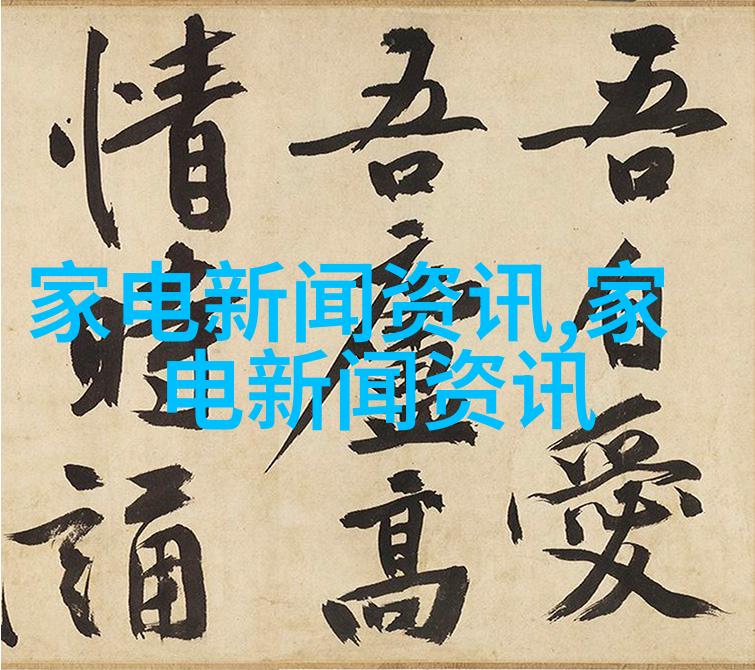 家电新闻资讯,家
电新闻资讯
吾自愛
吾廬高
情誦